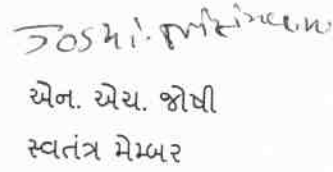 Joshi.
એન. એચ. જોષી
સ્વતંત્ર મેમ્બર